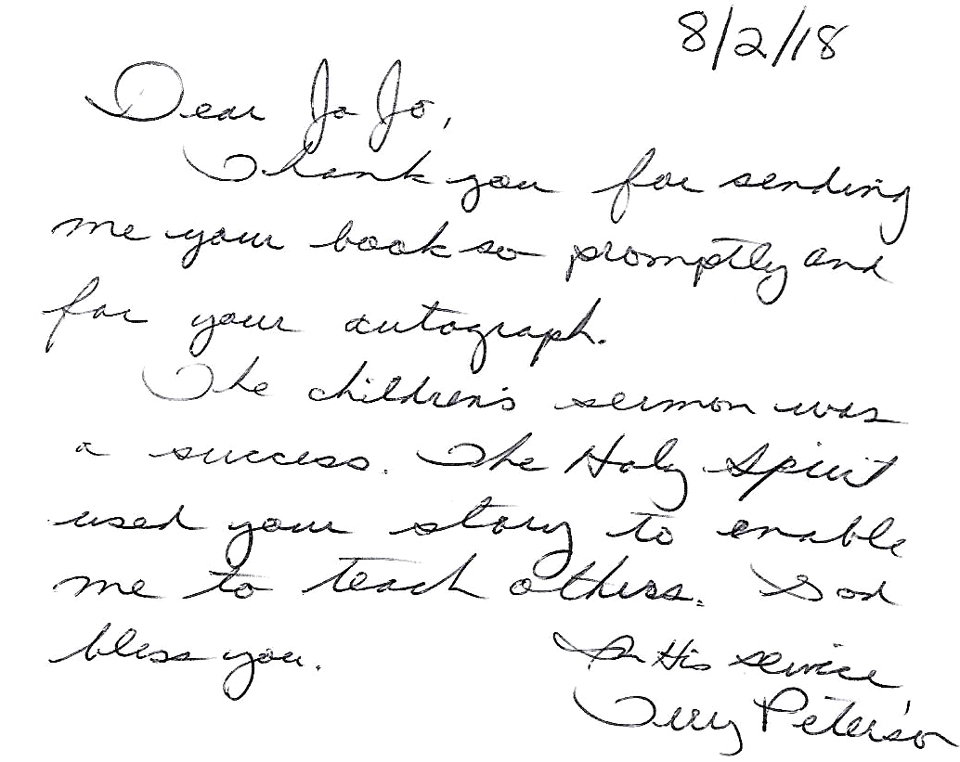 8/2/18
Dear Jo Jo,
Thank you for sending
me your book so promptly and
for your autograph.
The children's sermon was
a success. The Holy Spirit
used your story to enable
me to teach others. God
bless you.
In His service,
Terry Peterson